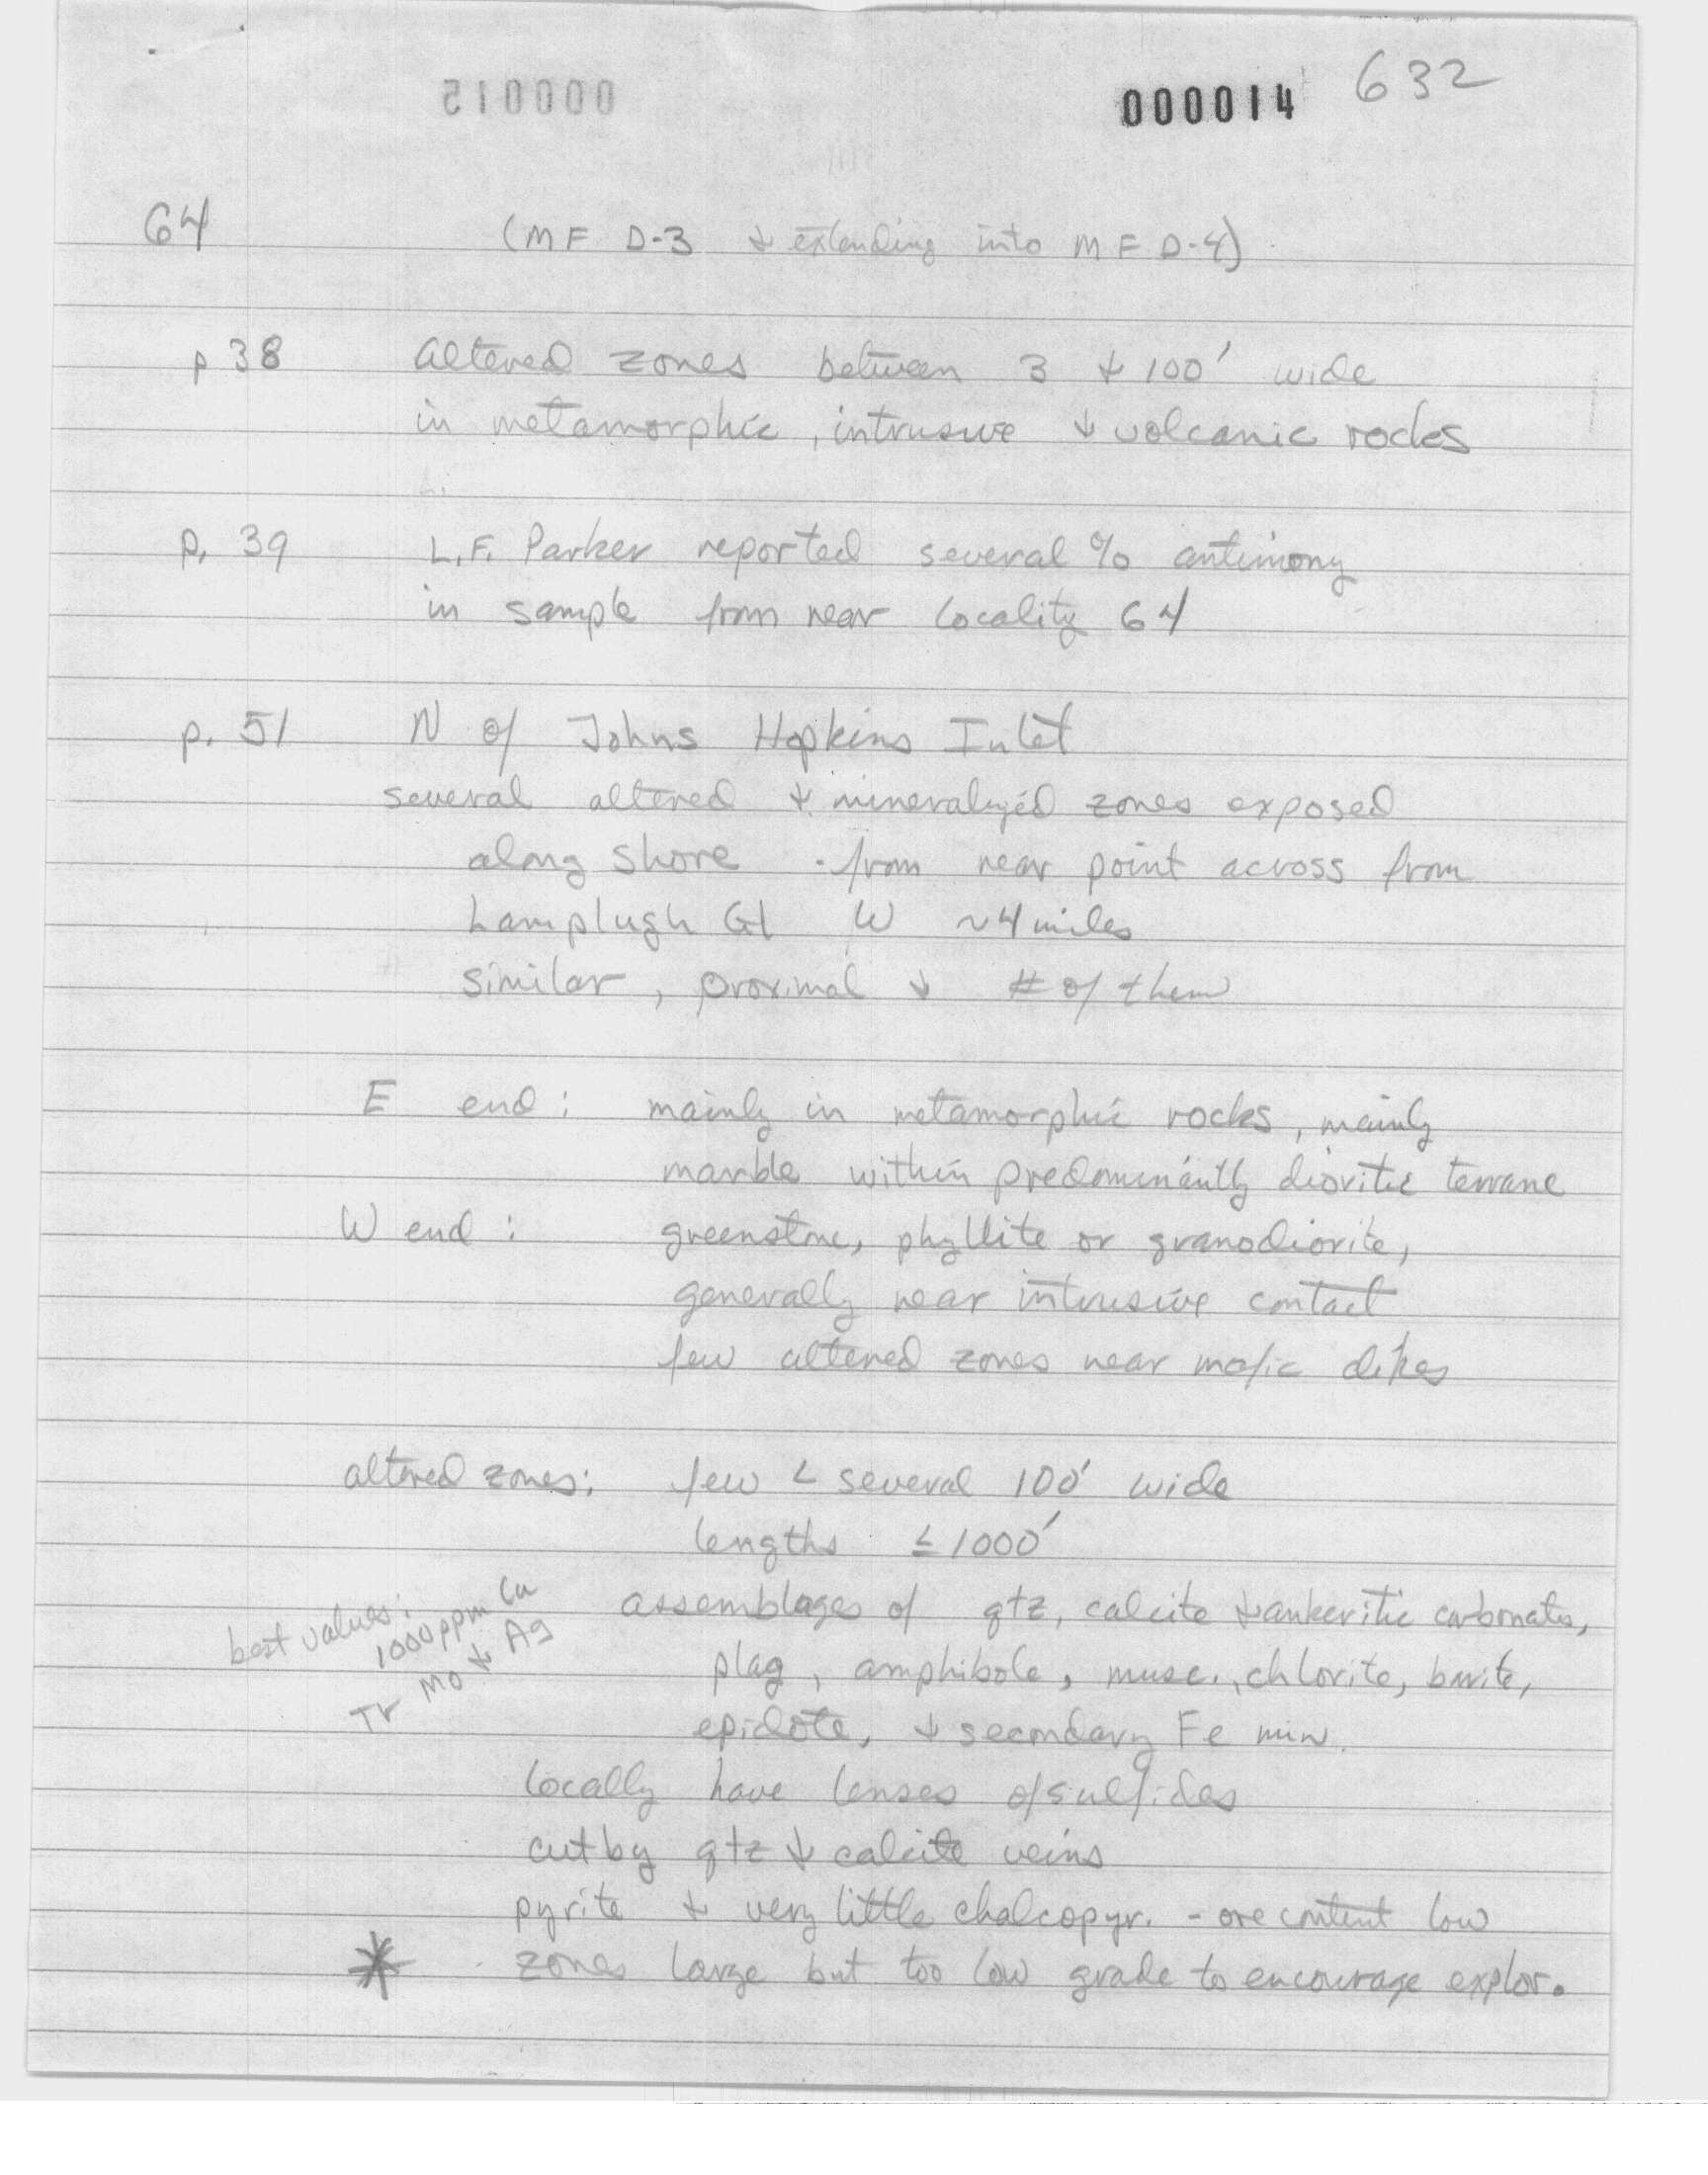 000015
000014 632
64 (MF D-3 & extending into MF D-4)
p 38 altered zones between 3 & 100' wide
in metamorphic, intrusive & volcanic rocks
p. 39 L.F. Parker reported several % antimony
in sample from near locality 64
p. 51 N of Johns Hopkins Inlet
several altered & mineralyzed zones exposed
along shore - from near point across from
Lamplugh Gl W ~4 miles
similar, proximal & # of them
E end: mainly in metamorphic rocks, mainly
marble within predominantly dioritic terrane
W end: greenstone, phyllite or granodiorite,
generally near intrusive contact
few altered zones near mafic dikes
altered zones: few < several 100' wide
lengths ≤ 1000'
assemblages of qtz, calcite & ankeritic carbonates,
plag, amphibole, musc., chlorite, barite,
epidote, & secondary Fe min.
best values:
1000 ppm Cu
Tr Mo & Ag
locally have lenses of sulfides
cut by qtz & calcite veins
pyrite & very little chalcopyr. - ore content low
* zones large but too low grade to encourage explor.